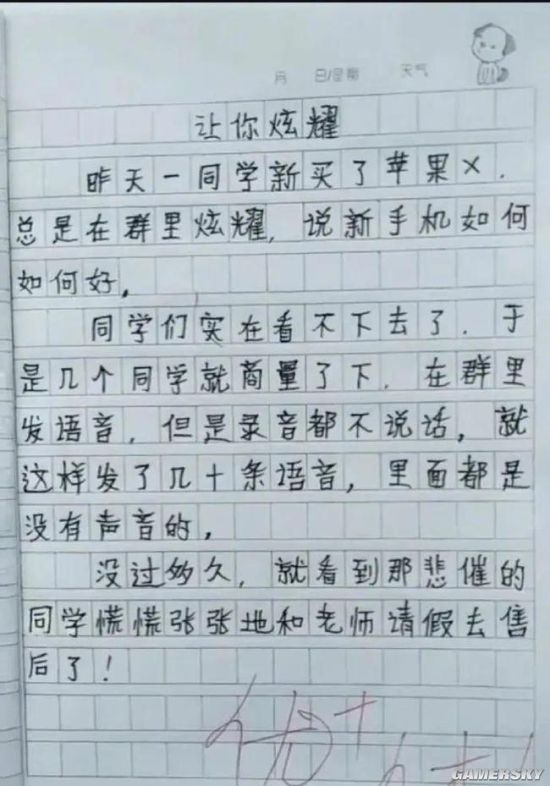 月 日/星期 天气
让你炫耀
昨天一同学新买了苹果X.
总是在群里炫耀,说新手机如何
如何好。
同学们实在看不下去了.于
是几个同学就商量了下.在群里
发语音,但是录音都不说话,就
这样发了几十条语音,里面都是
没有声音的。
没过多久,就看到那悲催的
同学慌慌张张地和老师请假去售
后了!
优+
GAMERSKY